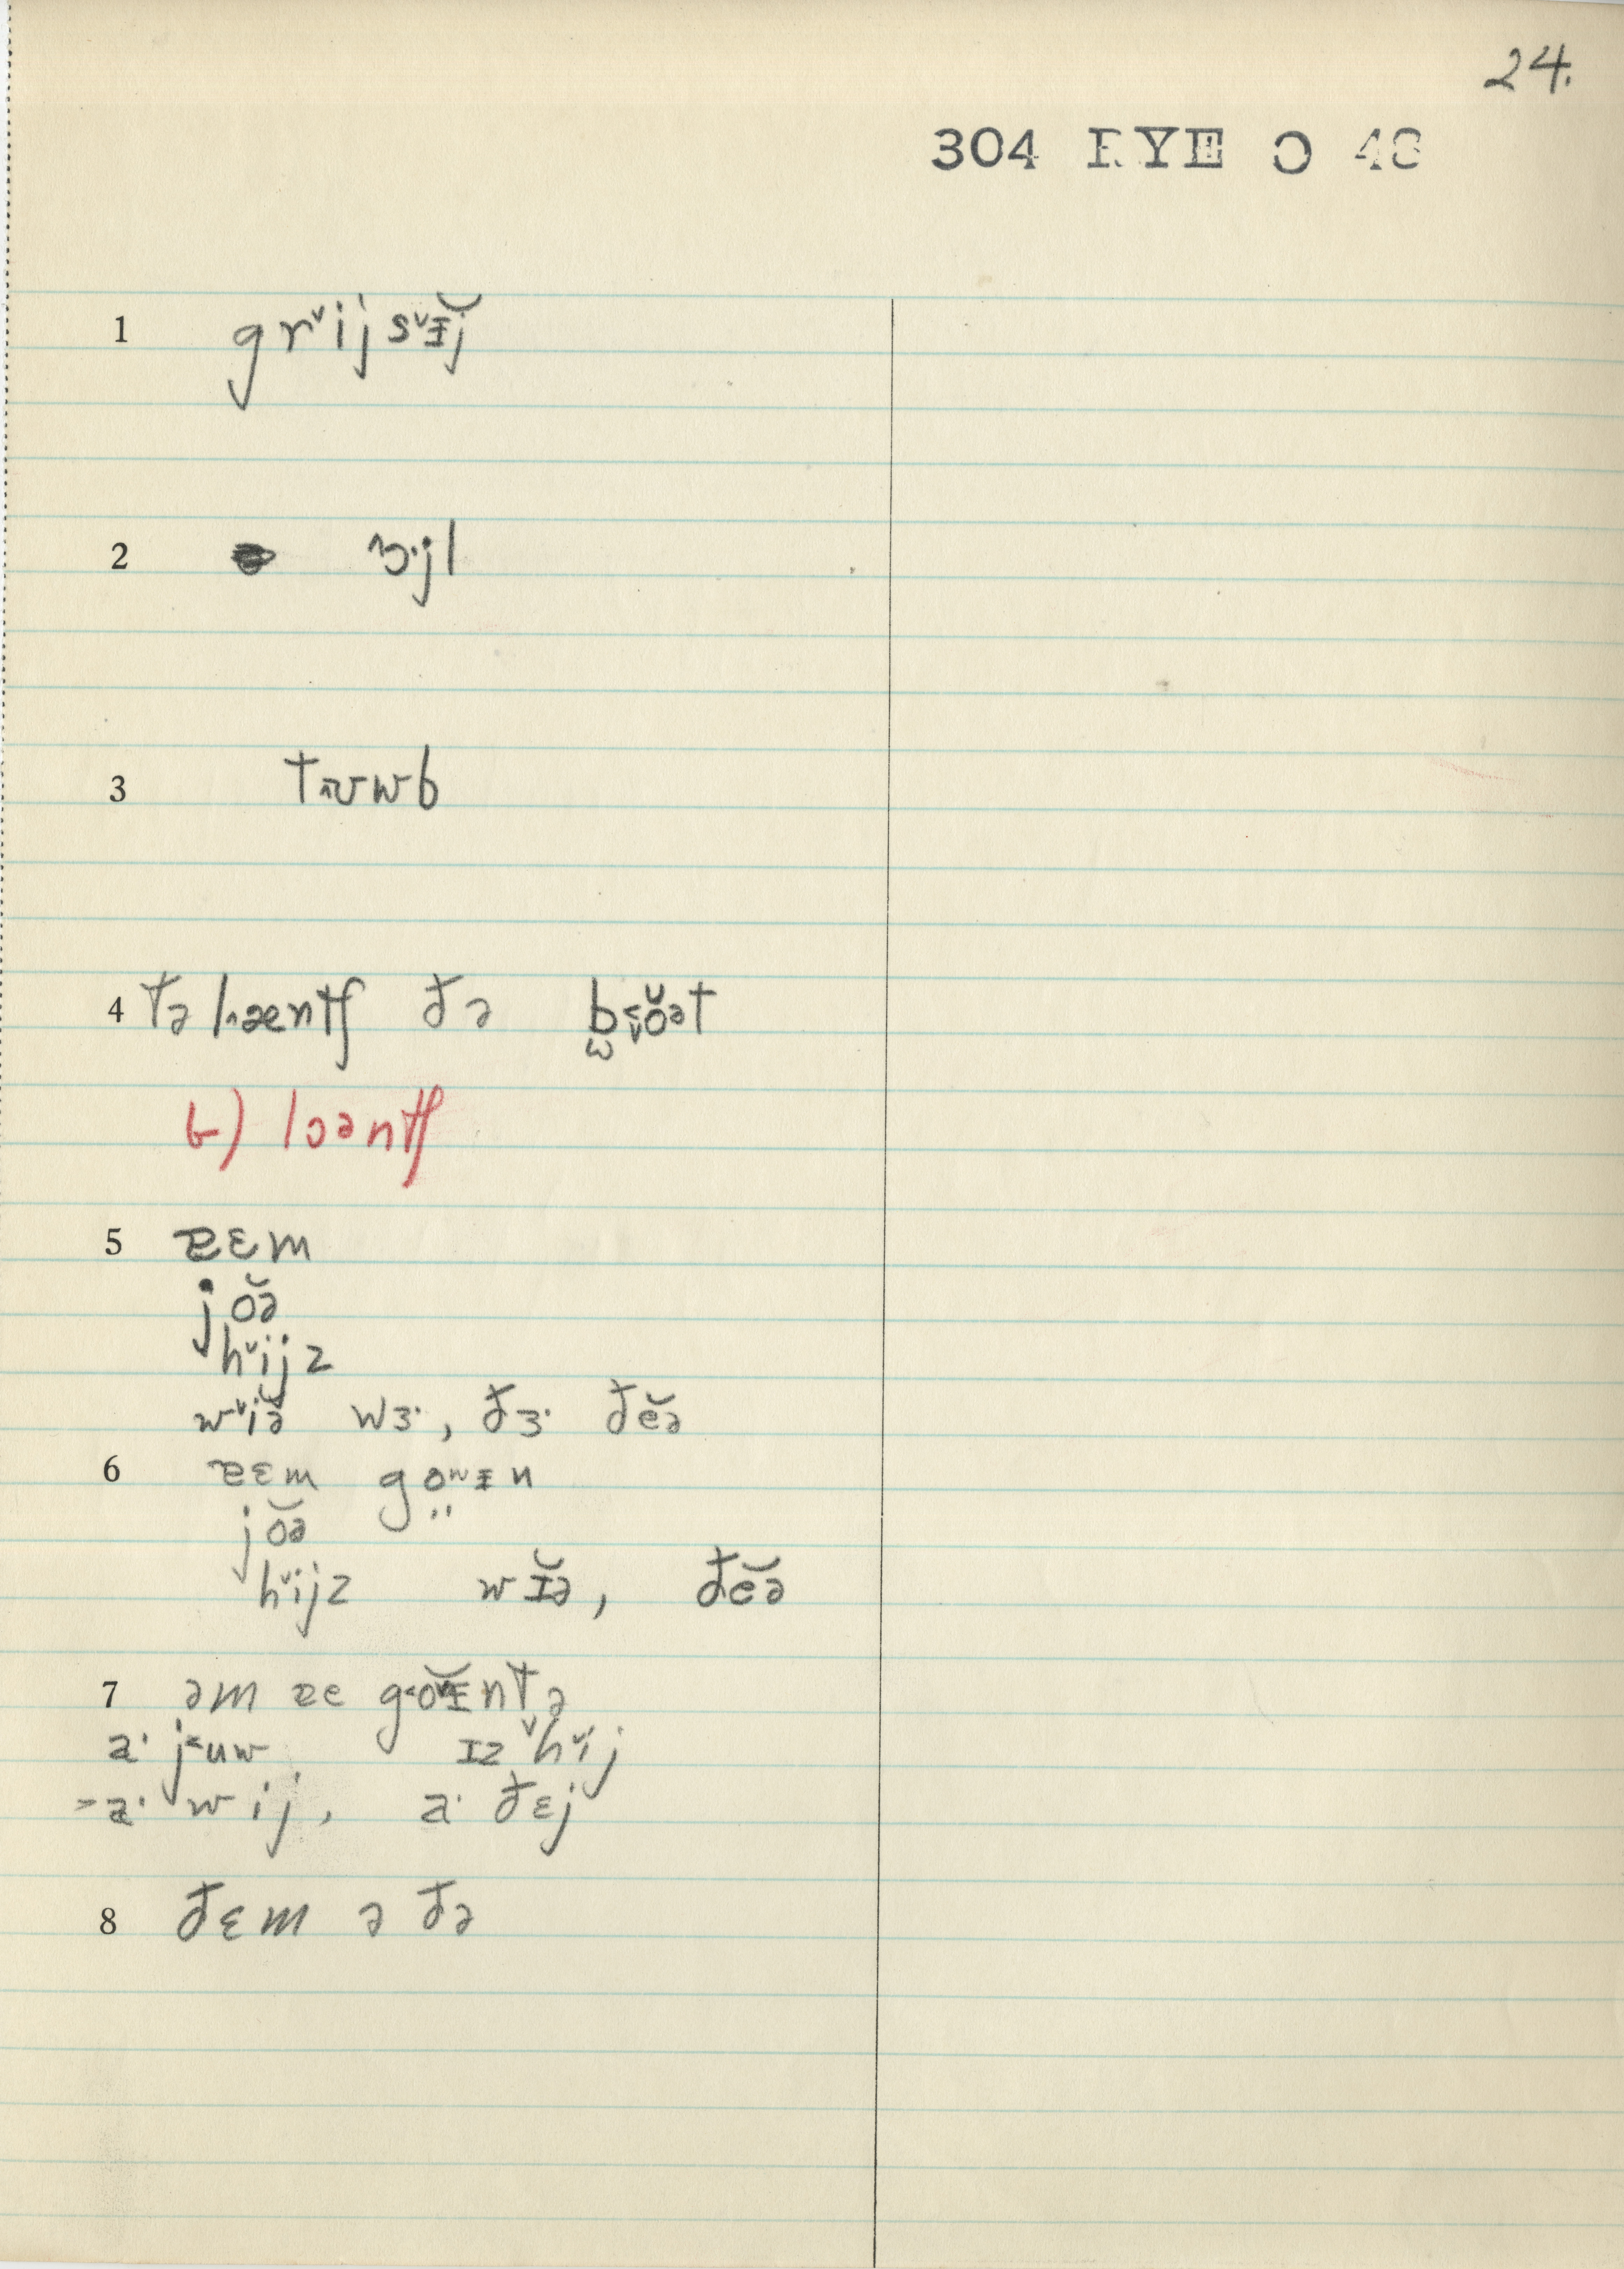 24.
304 RYE O 48
1 grᵛijsᵛɪ̵̆j
2 ɔ·jl
3 tɹʊwb
4 tə l˄æntʃ ðə b˂ŏət
b) lɔəntʃ
5 ɐɛm
jŏə
hᵛijz
wᵛiə̆ wɜ·, ðɜ· ðĕə
6 ɐɛm goʷɪ̵n
jŏə
hᵛijz wɪ̆ə, ðĕə
7 əm ɐe g˂oʷɪ̵̆ntə
a· j˂uw ɪz ᵛhᵛij
>a· wij, a· ðɛj
8 ðɛm ə ðə